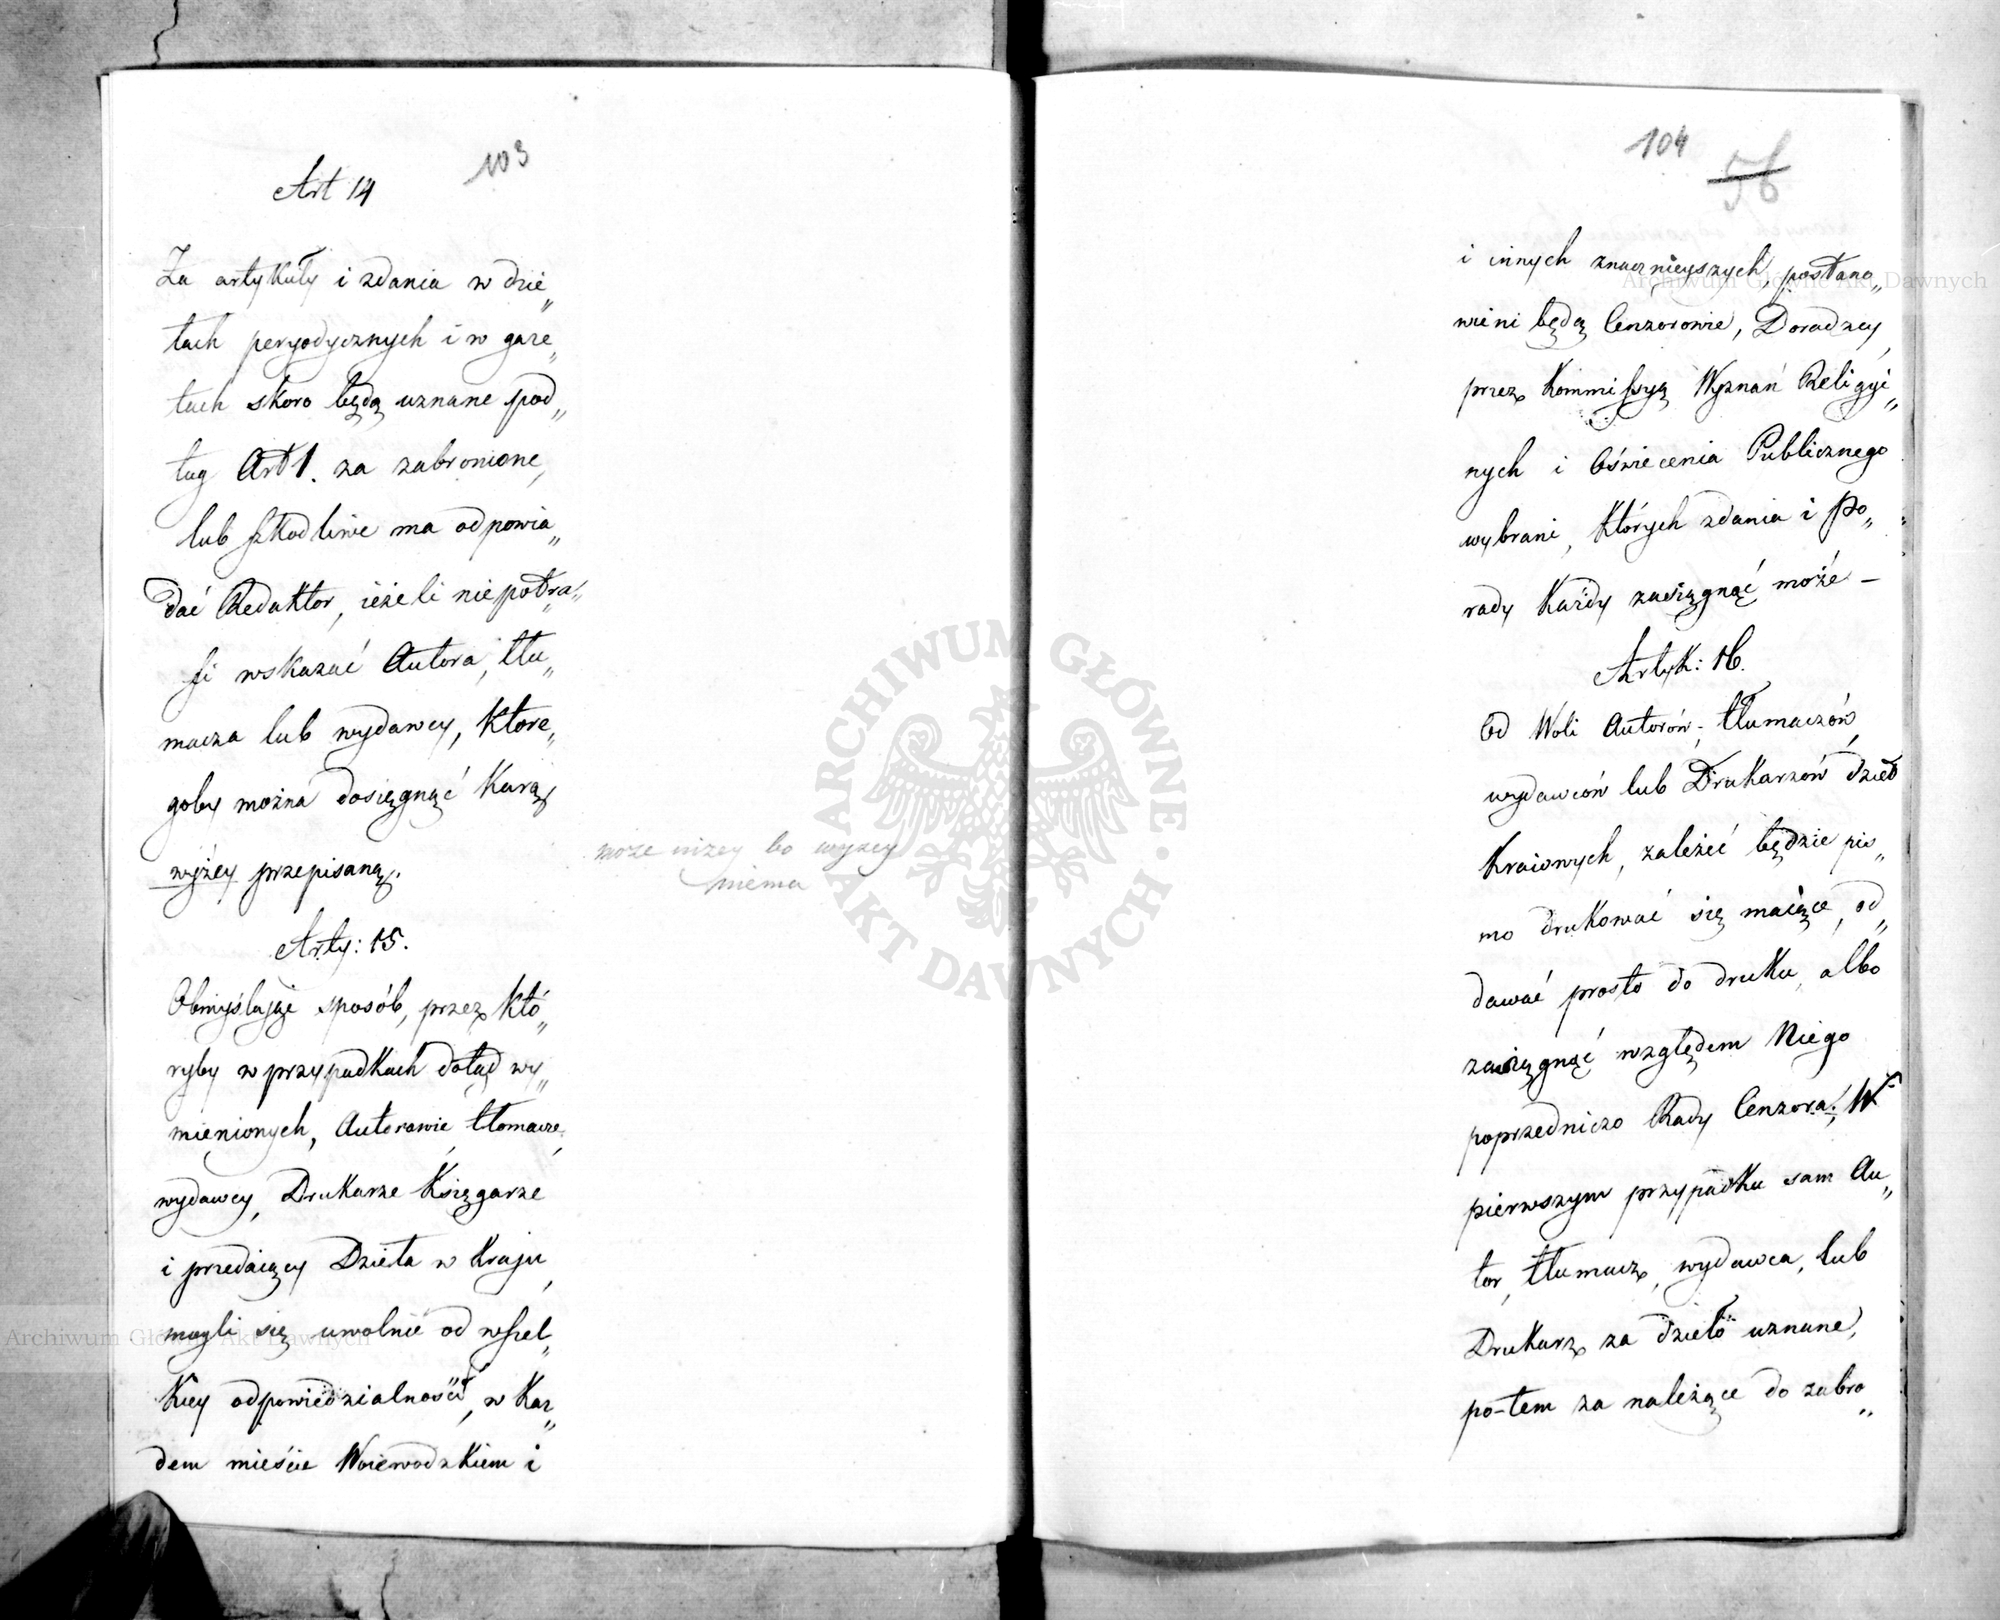 103
Art 14
Za artykuły i zdania w dzie„
łach peryodycznych i w gaze„
tach skoro będą uznane pod„
ług Art 1. za zabronione,
lub szkodliwe ma odpowia„
dać Redaktor, ieżeli niepotra„
fi wskazać Autora, tłu„
macza lub wydawcy, które„
goby można dosięgnąć karą
wyżey przepisaną.
może niżey bo wyżey
niema
Arty: 15.
Obmyślając sposób, przez któ„
ryby w przypadkach dotąd wy„
mienionych, Autorowie, tłomacze,
wydawcy, Drukarze Księgarze
i przedaiący Dzieła w Kraju,
mogli się uwolnić od wszel„
kiey odpowiedzialności, w Każ„
dem mieście Woiewodzkiem i
104
56
i innych znacznieyszych, postano„
wieni będą Cenzorowie, Doradzcy,
przez Kommissyą Wyznań Religyi„
nych i Oświecenia Publicznego
wybrani, których zdania i po„
rady każdy zasiągnąć może –
Artyk: 16.
Od Woli Autorów, tłumaczów,
wydawców lub Drukarzów dzieł
kraiowych, zależeć będzie pis„
mo drukować się maiące, od„
dawać prosto do druku, albo
zasiągnąć względem Niego
poprzedniczo Rady Cenzora; W
pierwszym przypadku sam Au„
tor, tłumacz, wydawca, lub
Drukarz za dzieło uznane,
po-tem za należące do zabro„
ARCHIWUM GŁÓWNE AKT DAWNYCH
Archiwum Główne Akt Dawnych
Archiwum Główne Akt Dawnych